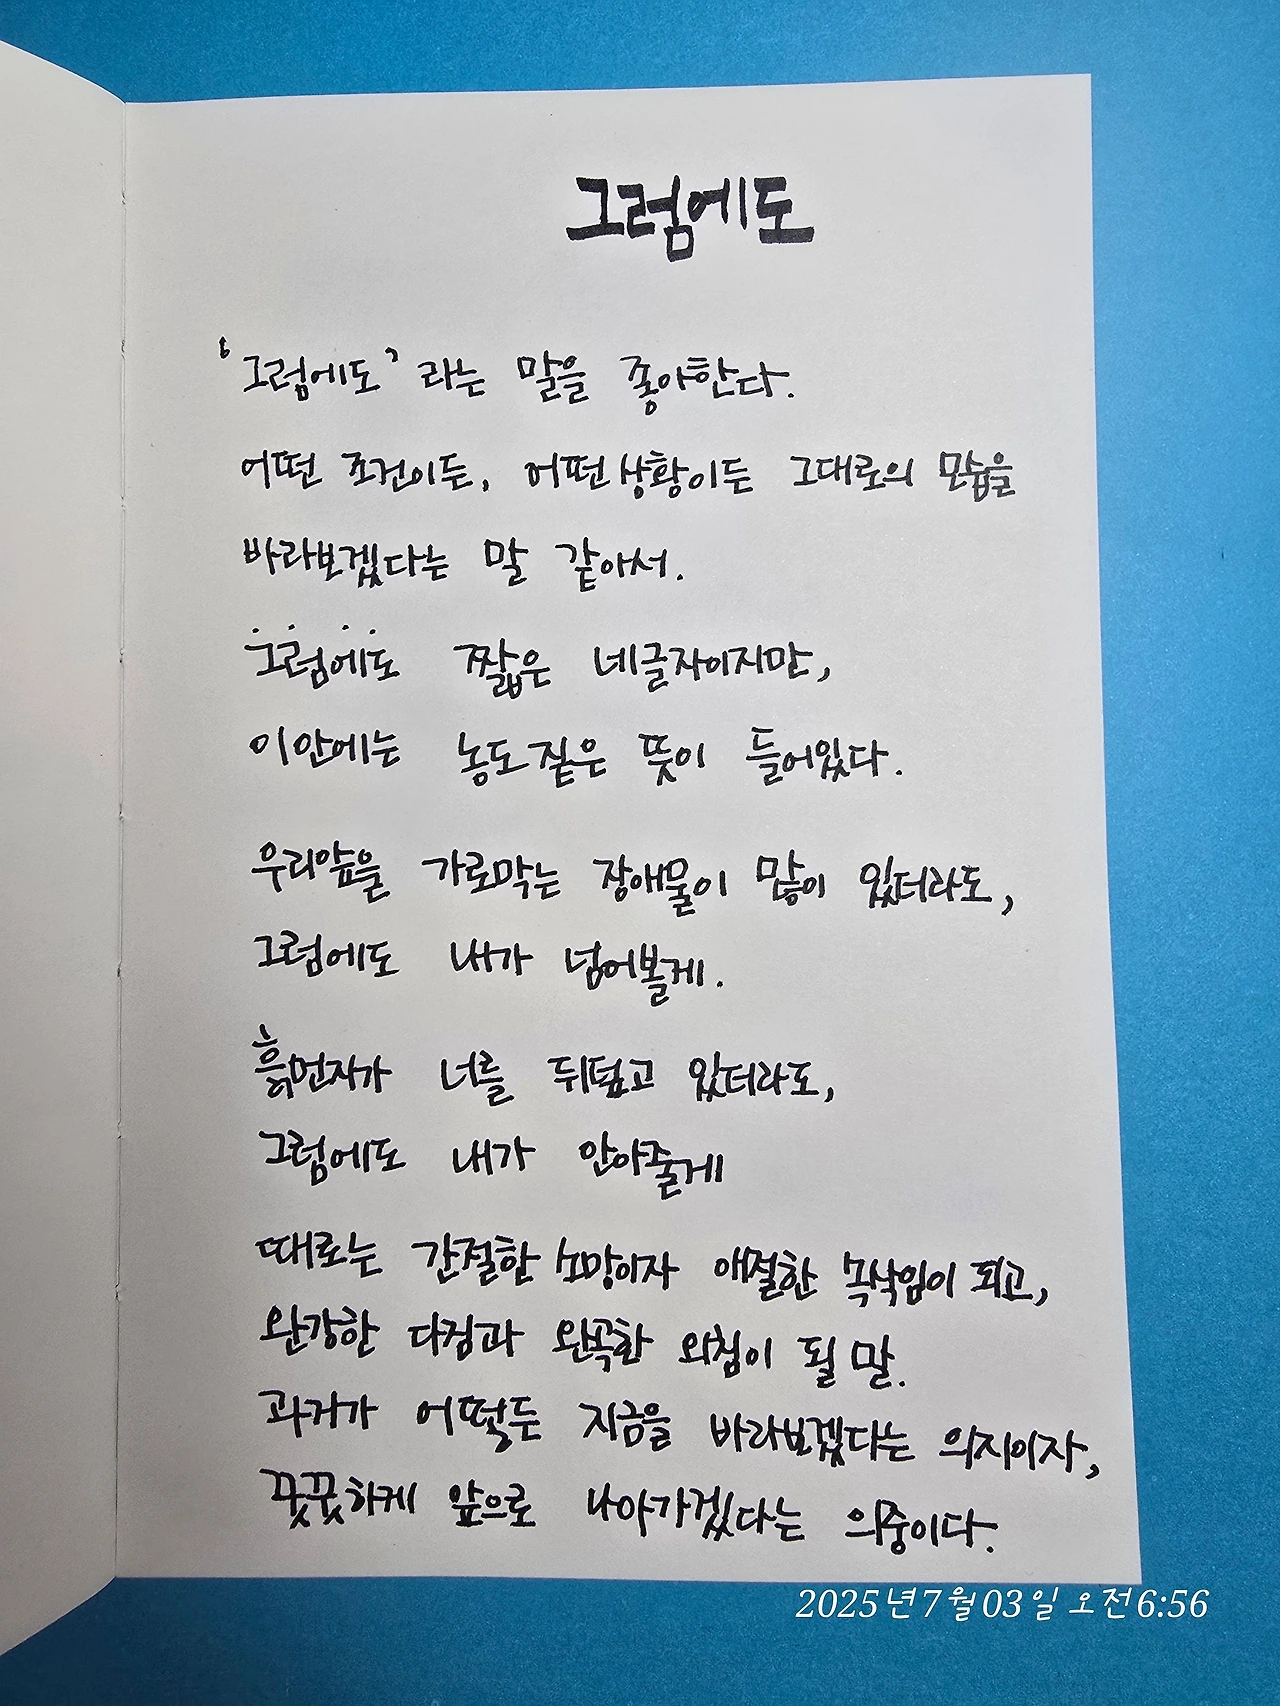 그럼에도
'그럼에도' 라는 말을 좋아한다.
어떤 조건이든, 어떤 상황이든 그대로의 모습을
바라보겠다는 말 같아서.
그럼에도 짧은 네글자이지만,
이 안에는 농도 짙은 뜻이 들어있다.
우리앞을 가로막는 장애물이 많이 있더라도,
그럼에도 내가 넘어볼게.
흙먼지가 너를 뒤덮고 있더라도,
그럼에도 내가 안아줄게
때로는 간절한 소망이자 애절한 속삭임이 되고,
완강한 다짐과 완곡한 외침이 될 말.
과거가 어떻든 지금을 바라보겠다는 의지이자,
꿋꿋하게 앞으로 나아가겠다는 의중이다.
2025년 7월 03일 오전 6:56